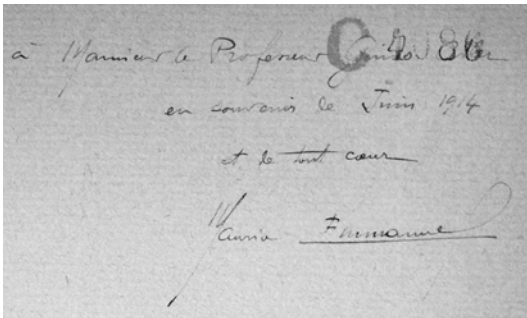 à Monsieur le Professeur
en souvenir de Juin 1914
et de tout cœur
Maurice Emmanuel